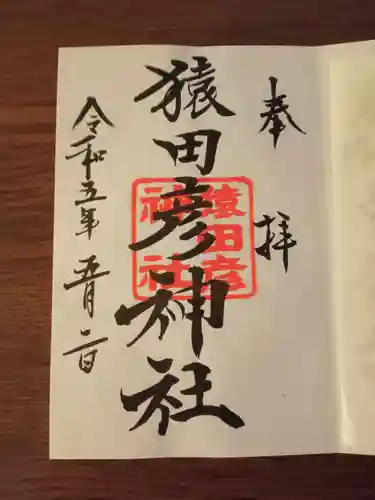 奉拝
猿田彦神社
猿田彦神社
令和五年五月二日